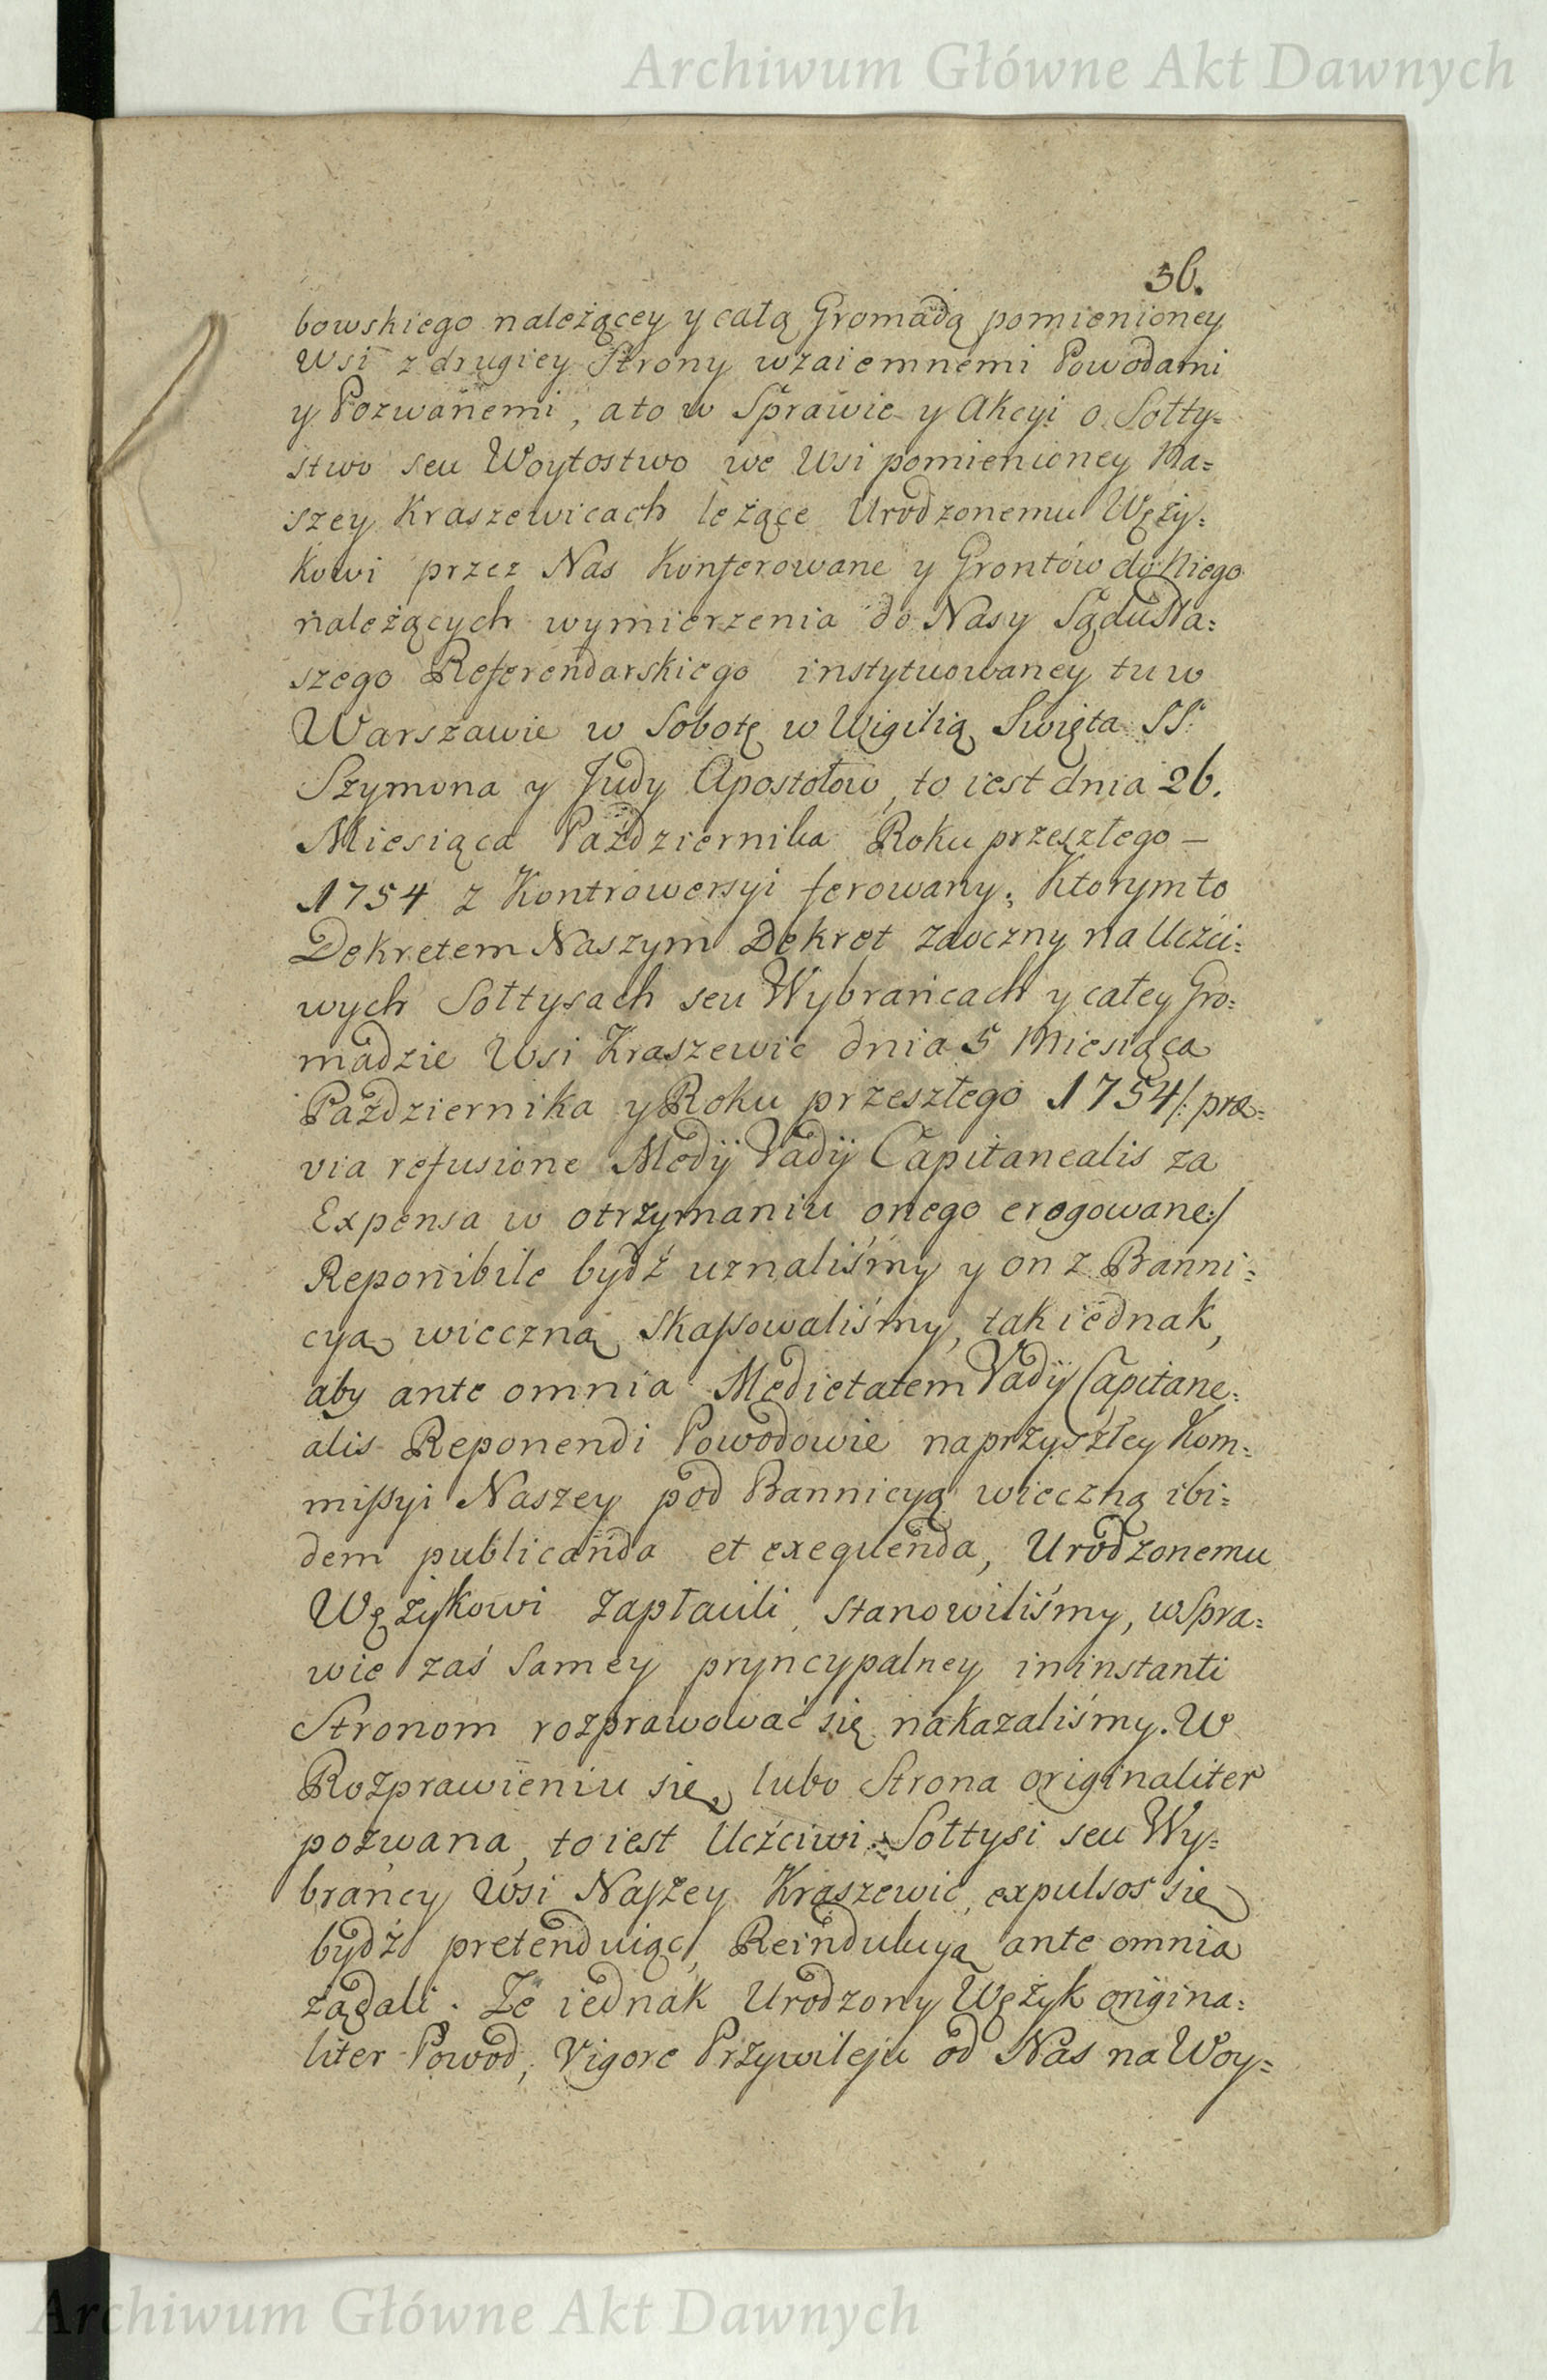 Archiwum Główne Akt Dawnych
36.
bowskiego należącey y całą Gromadą pomienioney
Wsi z drugiey Strony wzaiemnemi Powodami
y Pozwanemi, a to w Sprawie y Akcyi o Sołty=
stwo seu Woytostwo we Wsi pomienioney Na=
szey Kraszewicach leżące Urodzonemu Węży=
kowi przez Nas konferowane y Grontów do Niego
należących wymierzenia do Nasy Sądu Na=
szego Referendarskiego instytuowaney tu w
Warszawie w Sobotę w Wigilią Swięta SS.
Szymona y Judy Apostołow, to iest dnia 26.
Miesiąca Października Roku przeszłego —
1754 z Kontrowersyi ferowany; Ktorym to
Dekretem Naszym Dekret zaoczny na Uczci=
wych Sołtysach seu Wybrańcach y całey Gro=
madzie Wsi Kraszewic dnia 5 Miesiąca
Października y Roku przeszłego 1754 /: præ=
via refusione Medij Vadij Capitanealis za
Expensa w otrzymaniu onego erogowane :/
Reponibile bydź uznaliśmy y on z Banni=
cyą wieczną skassowaliśmy, tak iednak,
aby ante omnia Medietatem Vadij Capitane=
alis Reponendi Powodowie na przyszłey Kom=
missyi Naszey pod Bannicyą wieczną ibi=
dem publicanda et exequenda, Urodzonemu
Wężykowi zapłacili, stanowiliśmy, w Spra=
wie zaś samey pryncypalney in instanti
Stronom rozprawować się nakazaliśmy. W
Rozprawieniu się, lubo Strona originaliter
pozwana, to iest Uczciwi Sołtysi seu Wy=
brańcy Wsi Naszey Kraszewic, expulsos się
bydź pretenduiąc, Reindukcyą ante omnia
żądali. Że iednak Urodzony Wężyk origina=
liter Powod, Vigore Przywileju od Nas na Woy=
Archiwum Główne Akt Dawnych